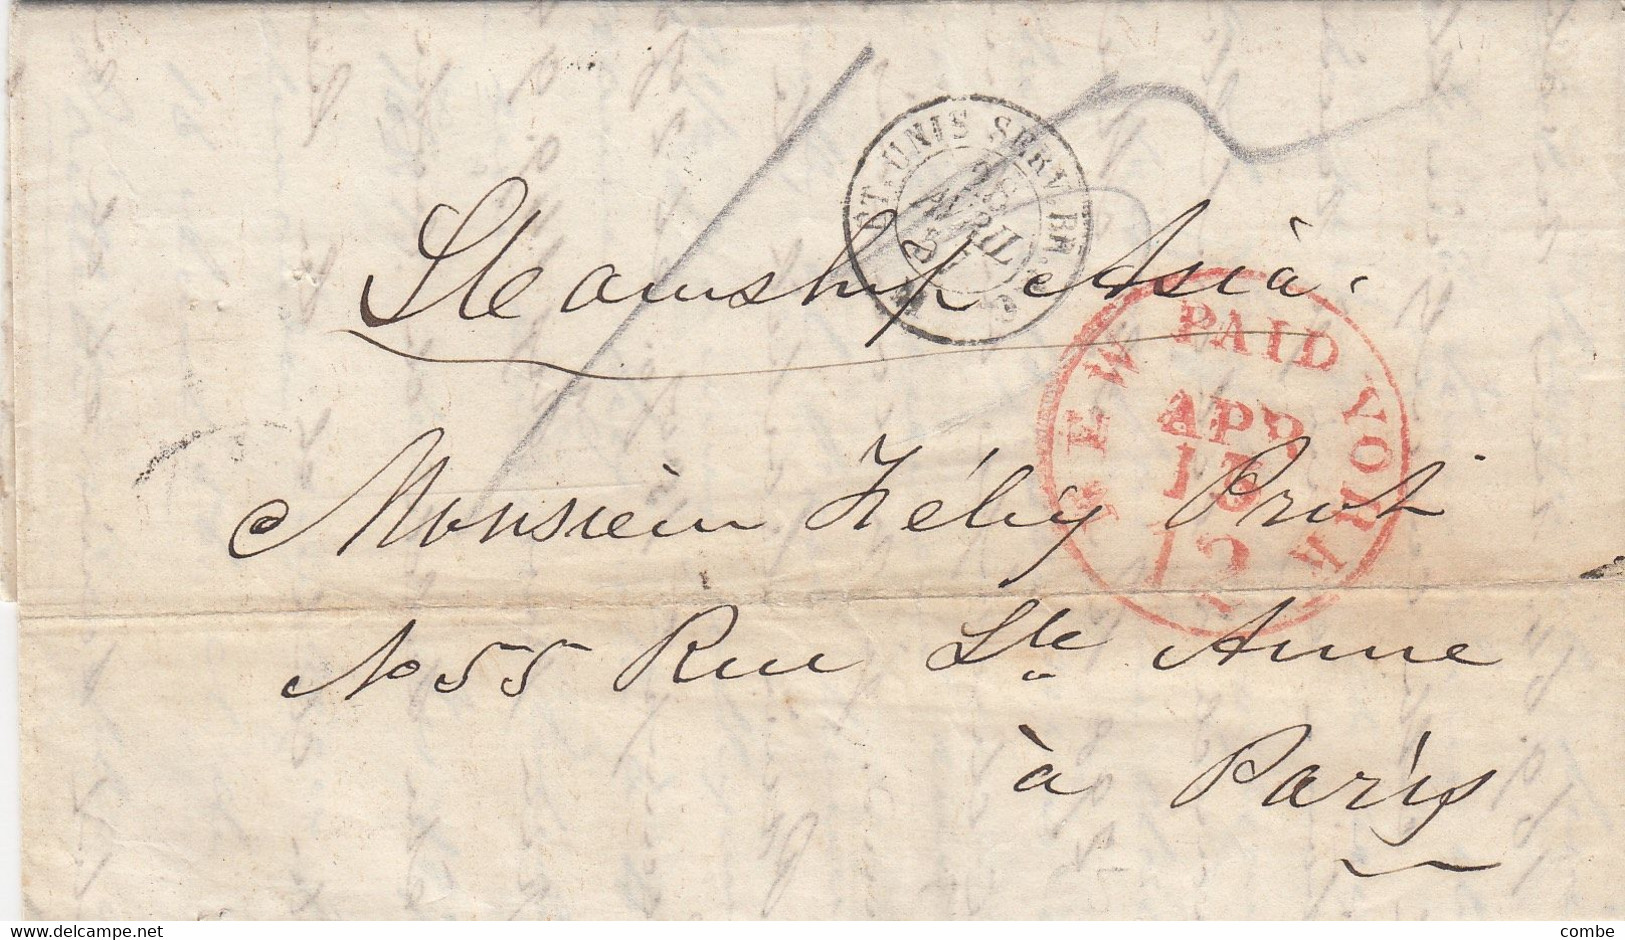 ET. UNIS SERV. BR.
28
AVRIL
Steamship Asia.
NEW PAID YORK
APR
13
12
Monsieur Félix Prot
No 55 Rue Ste Anne
à Paris
www.delcampe.net
combe